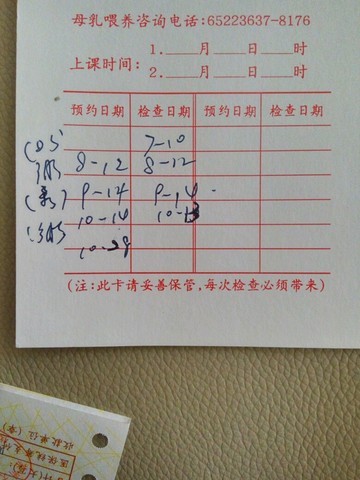 母乳喂养咨询电话:65223637-8176
上课时间:
1.____月____日____时
2.____月____日____时
预约日期 检查日期 预约日期 检查日期
7-10
8-12 8-12
9-14 9-14
10-14 10-13
10-28
(注:此卡请妥善保管,每次检查必须带来)
收款单位(章)